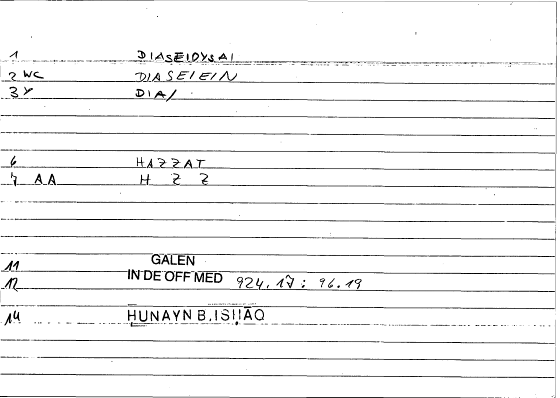 1 DIASEIOYSAI
2 WC DIASEIEIN
3 Y DIA/
6 HAZZAT
7 AA H Z Z
11 GALEN
12 IN DE OFF MED 924.17 : 96.19
14 HUNAYN B. ISḤĀQ